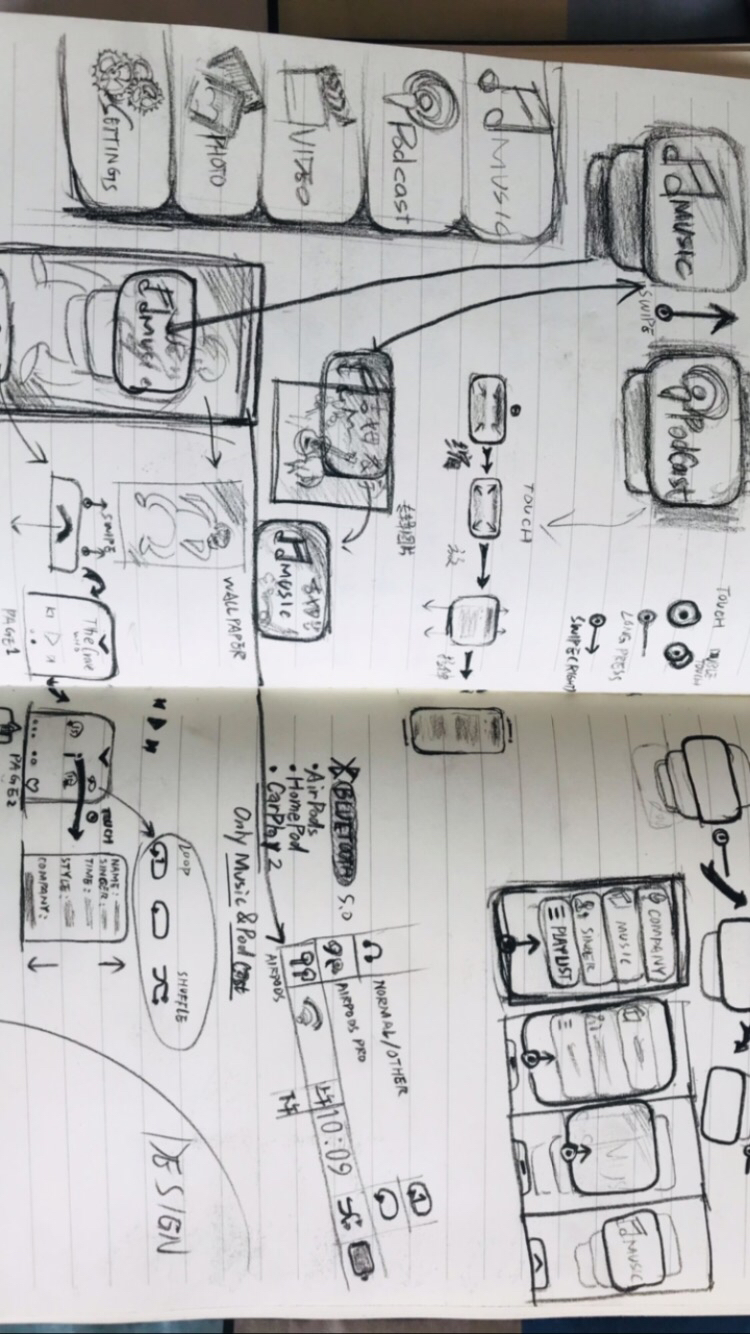 MUSIC
Podcast
VIDEO
PHOTO
SETTINGS
MUSIC
SWIPE
PodCast
MUSIC
MUSIC
TOUCH
WALLPAPER
SWIPE
PAGE1
TOUCH
DOUBLE TOUCH
LONG PRESS
SWIPE(RIGHT)
BLUETOOTH 5.0
• AirPods
• HomePod
• CarPlay 2
Only Music & Podcast
NORMAL/OTHER
AIRPODS PRO
AIRPODS
上午 10:09
下午
LOOP
SHUFFLE
TOUCH
PAGE2
NAME:
SINGER:
TIME:
STYLE:
COMPANY:
COMPANY
MUSIC
SINGER
PLAYLIST
MUSIC
DESIGN